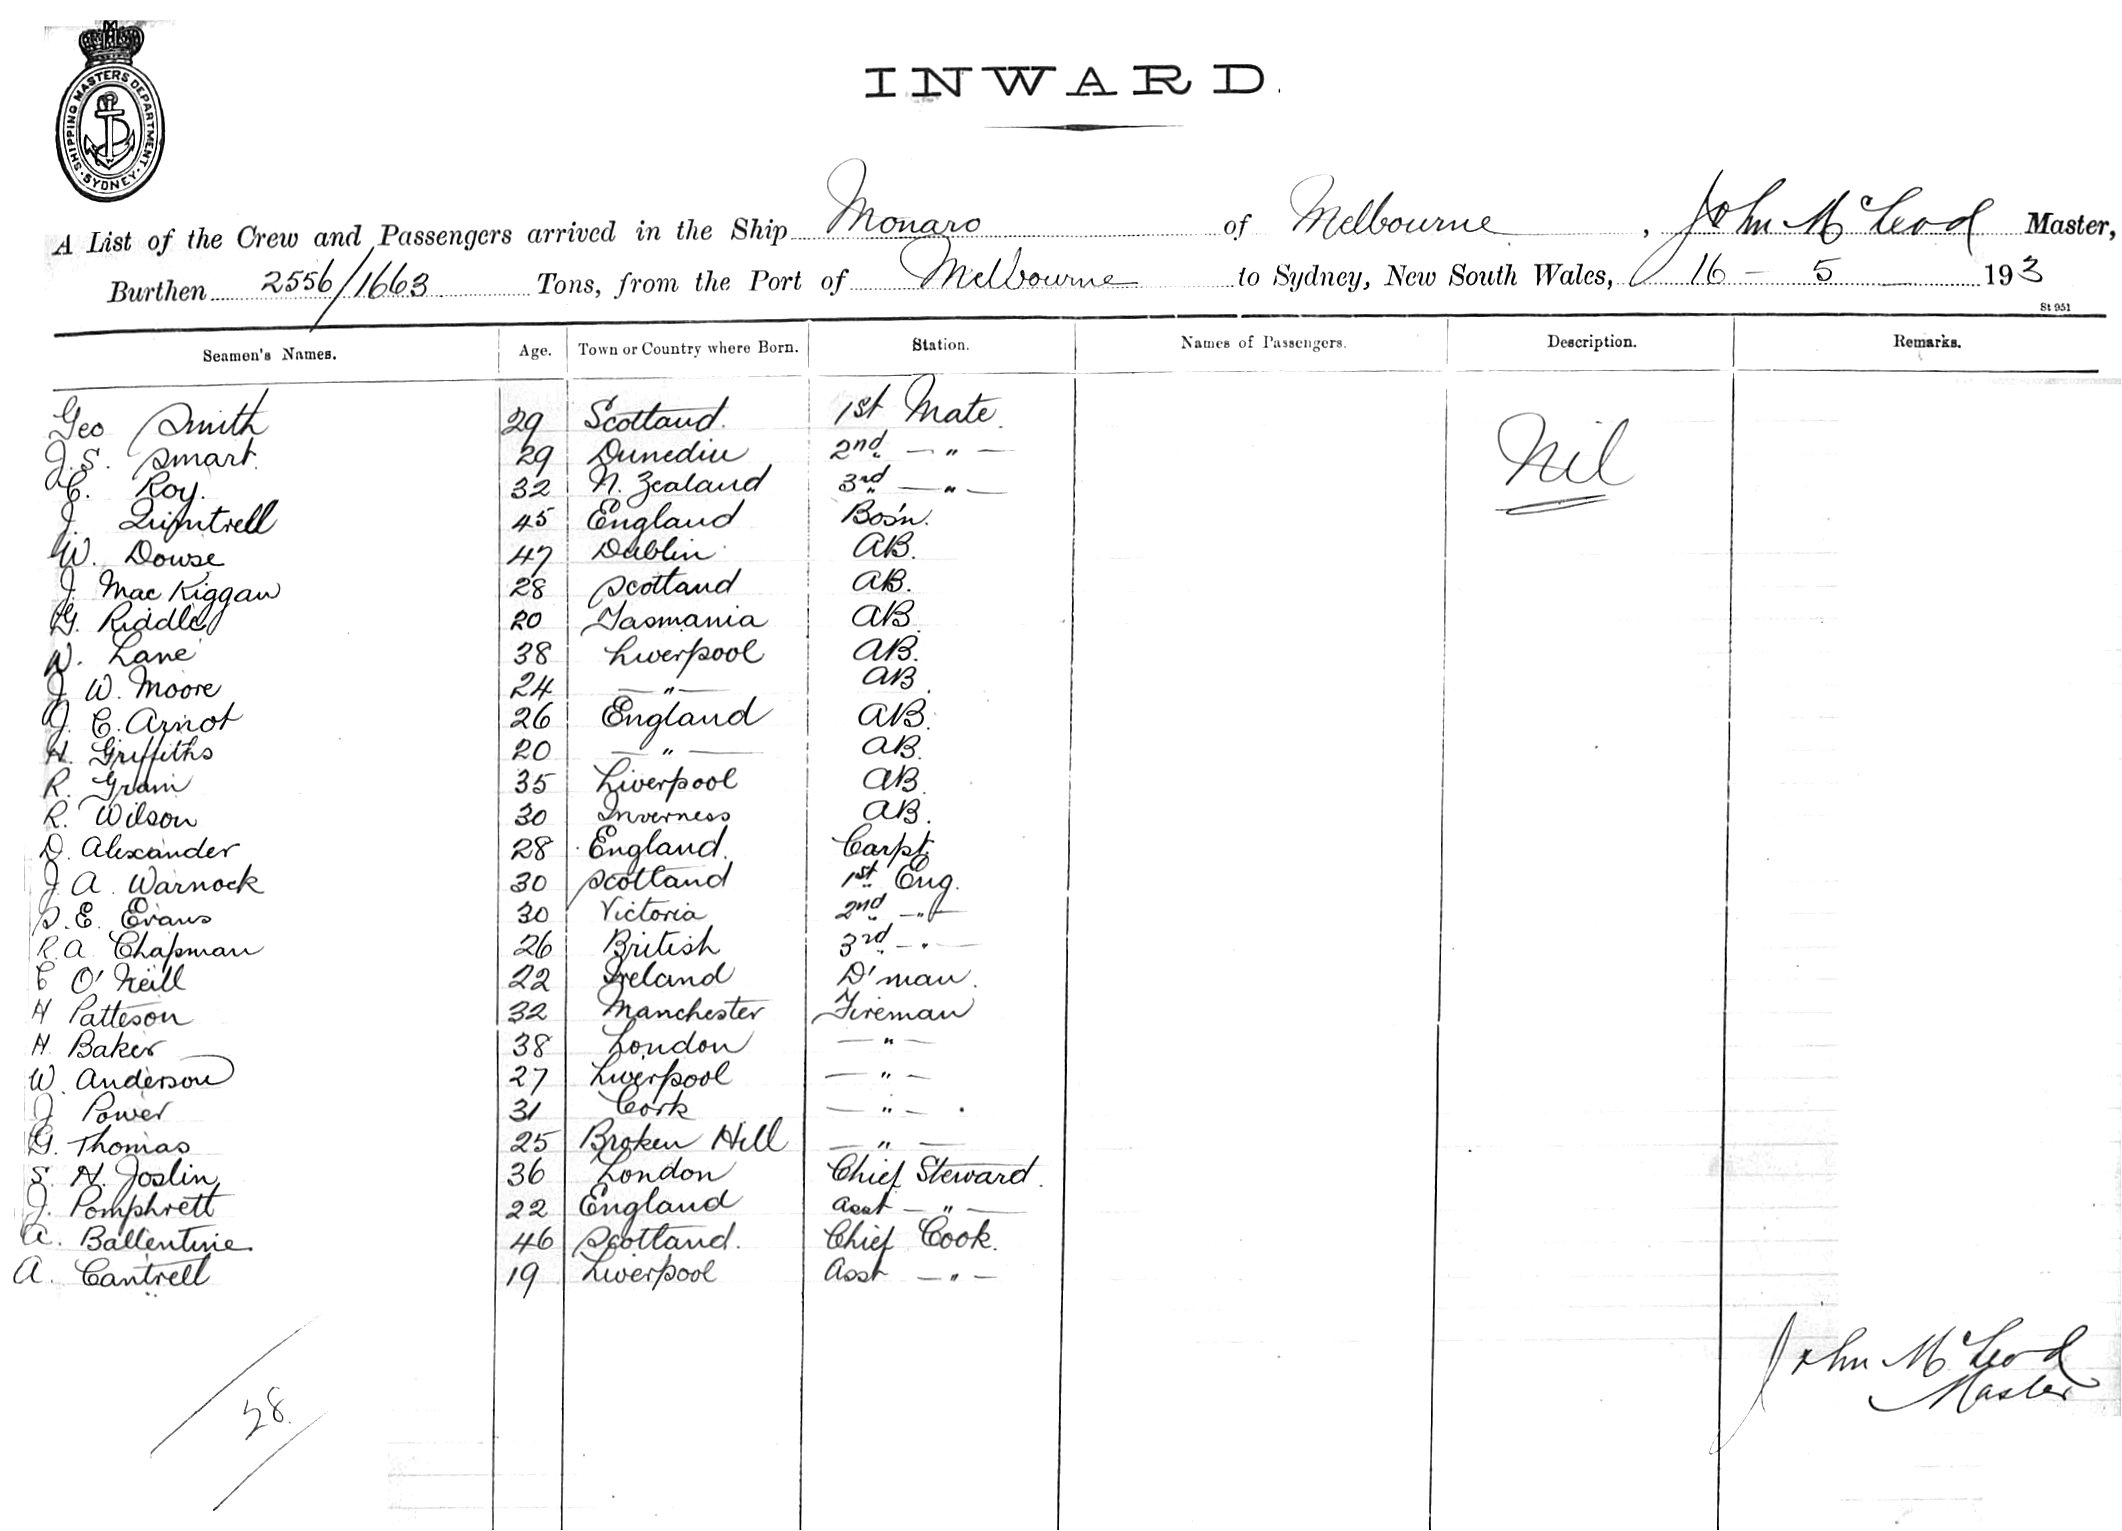 SHIPPING MASTERS DEPARTMENT. SYDNEY.
INWARD.
A List of the Crew and Passengers arrived in the Ship Monaro of Melbourne, John McLeod Master,
Burthen 2556/1663 Tons, from the Port of Melbourne to Sydney, New South Wales, 16 - 5 193
St 951
Seamen's Names. Age. Town or Country where Born. Station. Names of Passengers. Description. Remarks.
Geo Smith 29 Scotland. 1st Mate. Nil
J. S. Smart. 29 Dunedin 2nd — " —
C. Roy. 32 N. Zealand 3rd — " —
J. Quintrell 45 England Bos'n.
W. Dowse 47 Dublin AB.
J. MacKiggan 28 Scotland AB.
G. Riddle 20 Tasmania AB.
W. Lane 38 Liverpool AB.
J. W. Moore 24 — " — AB.
J. C. Arnot 26 England AB.
H. Griffiths 20 — " — AB.
R. Grain 35 Liverpool AB.
R. Wilson 30 Inverness AB.
D. Alexander 28 England. Carpt.
J. A. Warnock 30 Scotland 1st Eng.
S. E. Evans 30 Victoria 2nd — " —
R. A. Chapman 26 British 3rd — " —
C O'Neill 22 Ireland D'man.
H Patteson 32 Manchester Fireman
H. Baker 38 London — " —
W. Anderson 27 Liverpool — " —
J Power 31 Cork — " —
G. Thomas 25 Broken Hill — " —
S. H. Joslin 36 London Chief Steward.
J. Pomphrett 22 England Asst — " —
A. Ballentine. 46 Scotland. Chief Cook.
A. Cantrell 19 Liverpool Asst — " —
John McLeod
Master
28.